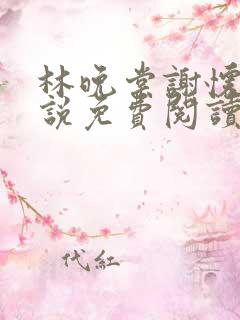 林晚棠謝懷
說免費閱讀
代紅